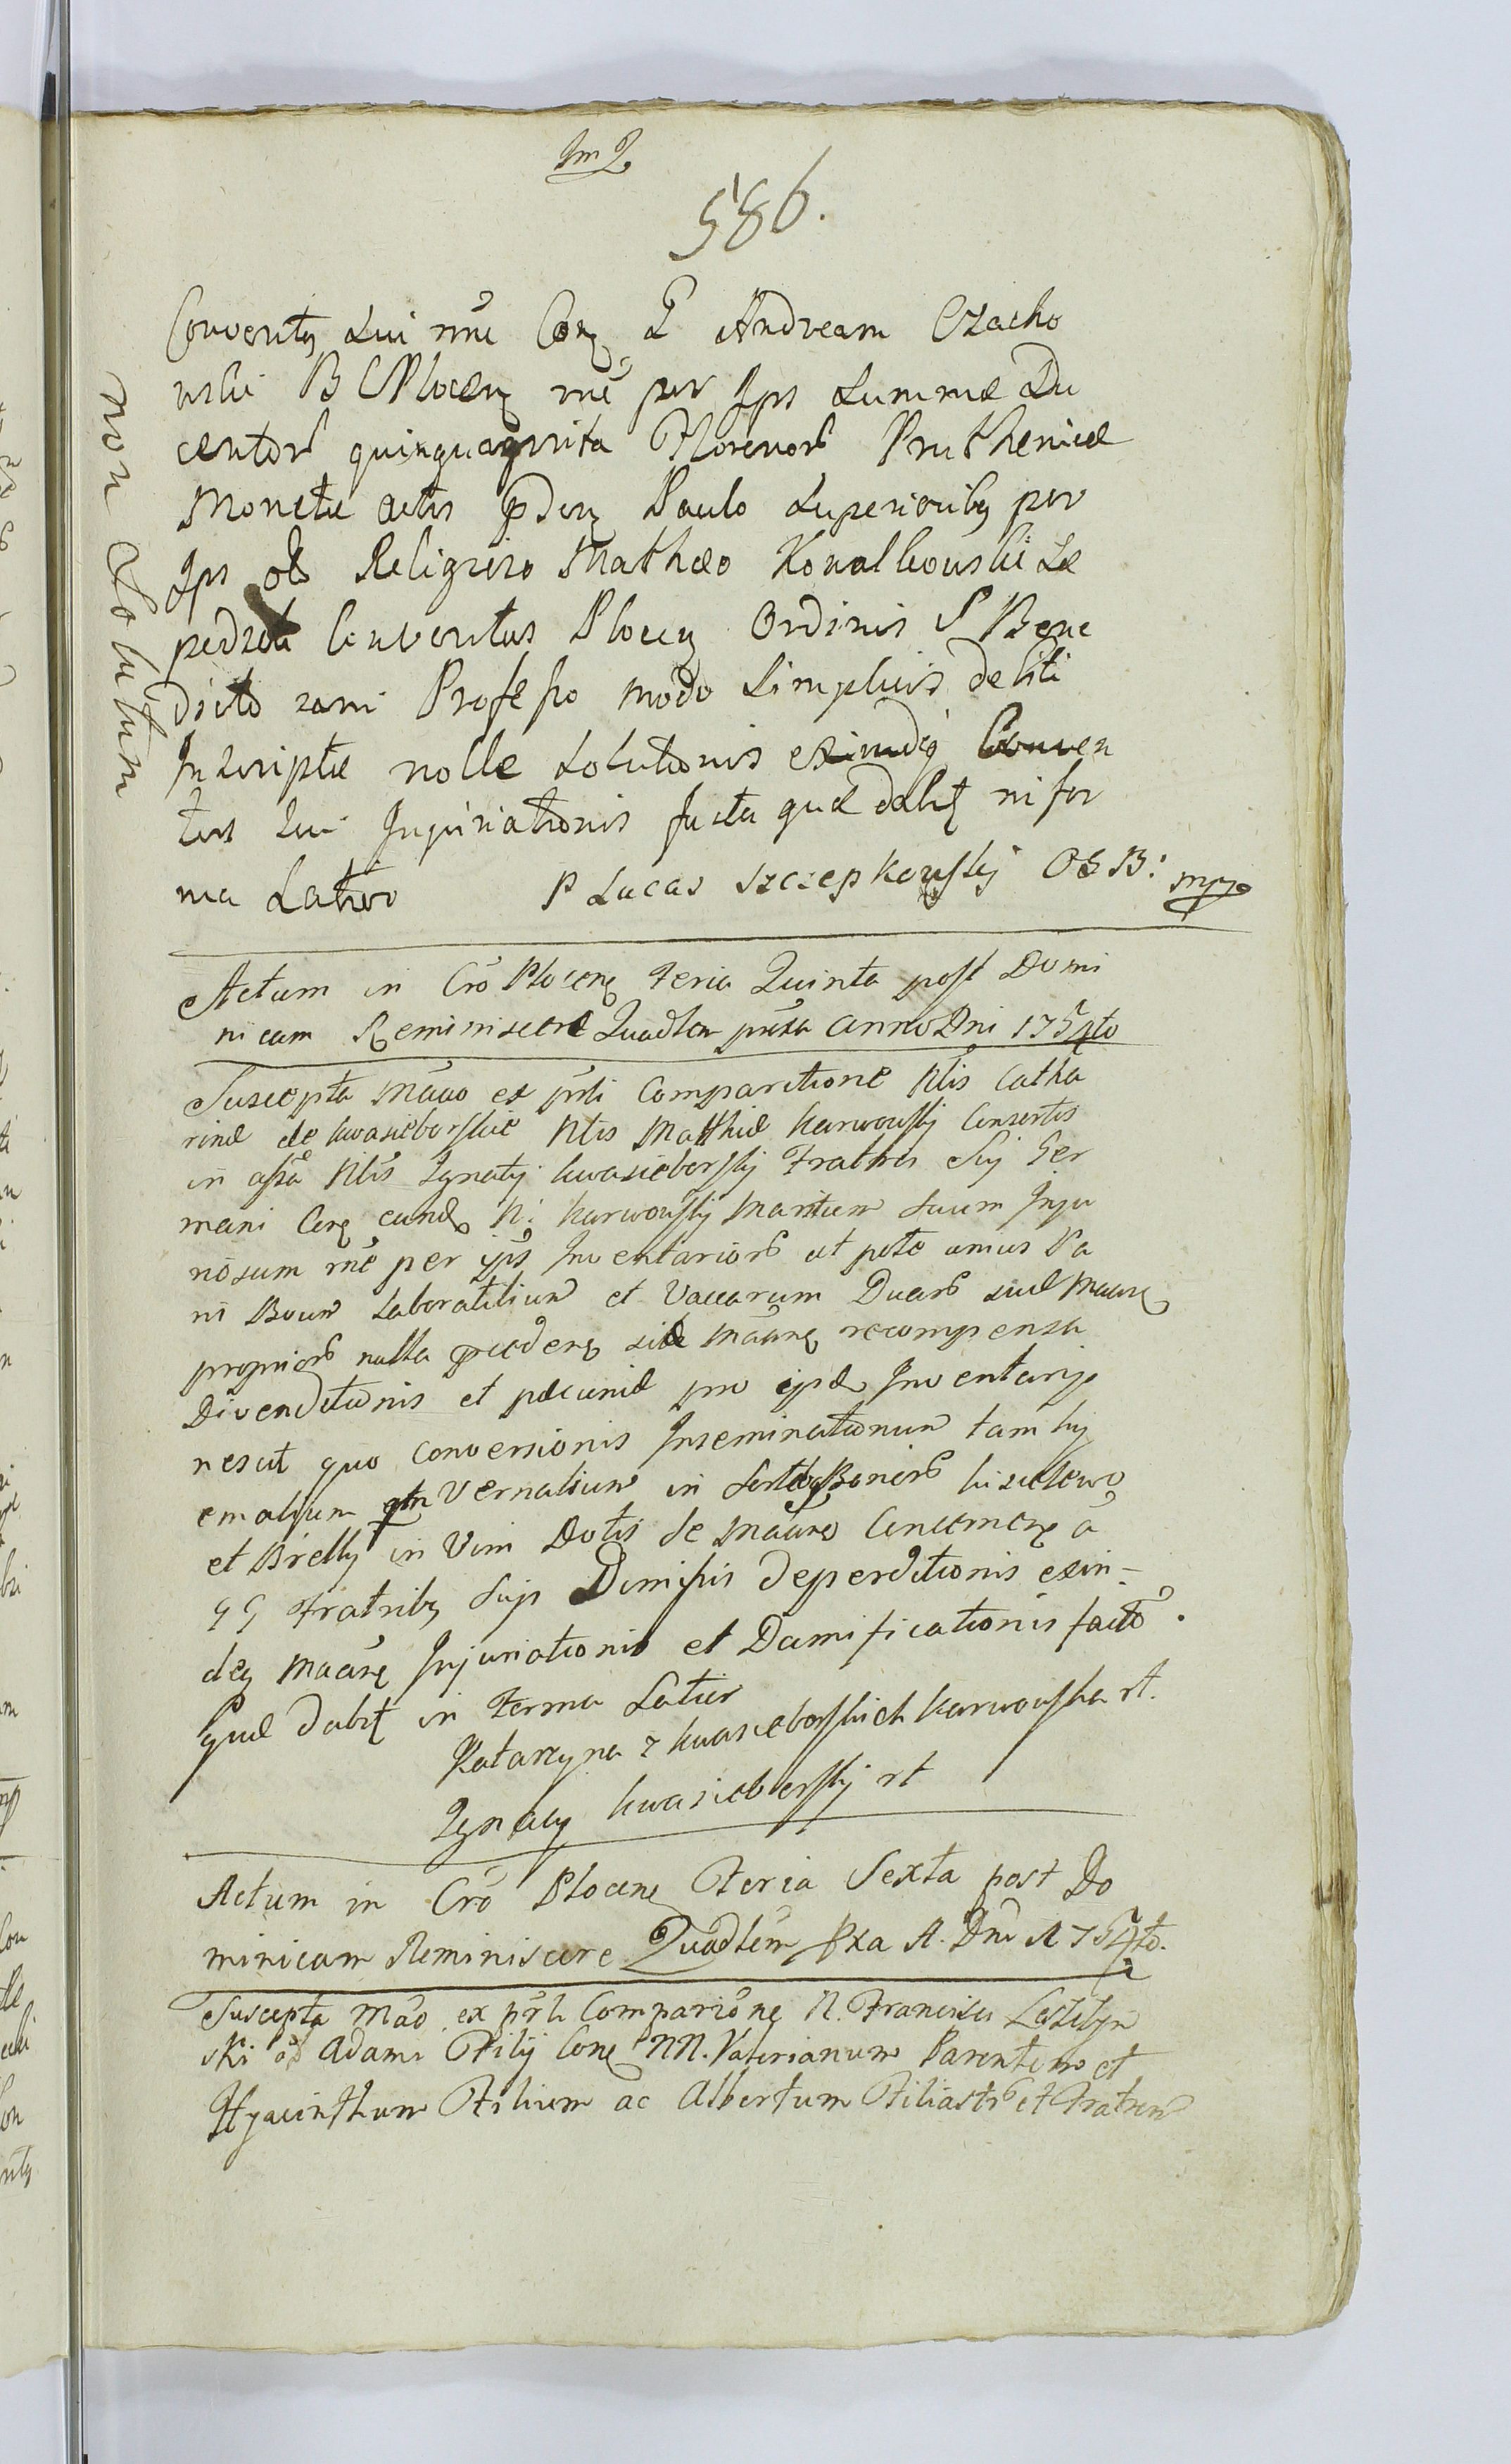 Im 2
586.
Conventus Sui rne Conq P Andream Czacho
wski B C Plocen rne per Ips summae Du
centorũ quinquaginta Florenorũ Pruthenicae
Monetae actis pden Paulo Superioribus per
Ips ob Religioso Mathaeo Kowalkowski
Conventus Plocen Ordinis S Bene
dicto rami Professo modo Simplicis debiti
Inscriptae nolle Solutionis exindeq Conven
tus sui Injuriationis facta quae dabit in for
ma Latior P Lucas Szczepkowskj OSB: mpp
non Solutum
Actum in Crõ Plocenq Feria Quinta post Domi
nicam Reminiscere Quadlem pxa anno Dni 1754to
Suscepta Mãao ex prli Comparitione Nlis Catha
rinae de kwasieborskie Nlis Mathiae karwowskj Consortis
in assã Nlis Ignatij kwasieborskj Fratris Sui Ger
mani Conq eundq N: karwowskj Maritum Suum Inju
riosum rne per ips Inventariorũ ut pote unius Pa
ri Boum Laboratilium et Vaccarum Duarũ suae Maarq
propriorũ nulla praeden sibi Mãarq recompensa
Divenditionis et paecuniae pro ejsdq Inventarijs
nescit quo conversionis Inseminationum tam hy
emalium qtm Vernalium in Sortibq Bonorũ
et Brelly in Vim Dotis de Mãarq Concernenq ã
GG Fratribq Suis Dimissis deperditionis exin-
deq Maarq Injuriationis et Damificationis factõ.
quae dabit in Forma Latior
Katarzyna z kwasieborskich karwowska rt.
Ignacy kwasieborskj rt
Actum in Crõ Plocenq Feria Sexta post Do
minicam Reminiscere Quadlem pxa A. Dni 1754to.
Suscepta Mão ex prli Comparione N. Francisci
ski ob Adami Filij Conq NN. Valerianum Parentem et
Hyacinthum Filium ac Albertum Filiastrũ et Fratrem